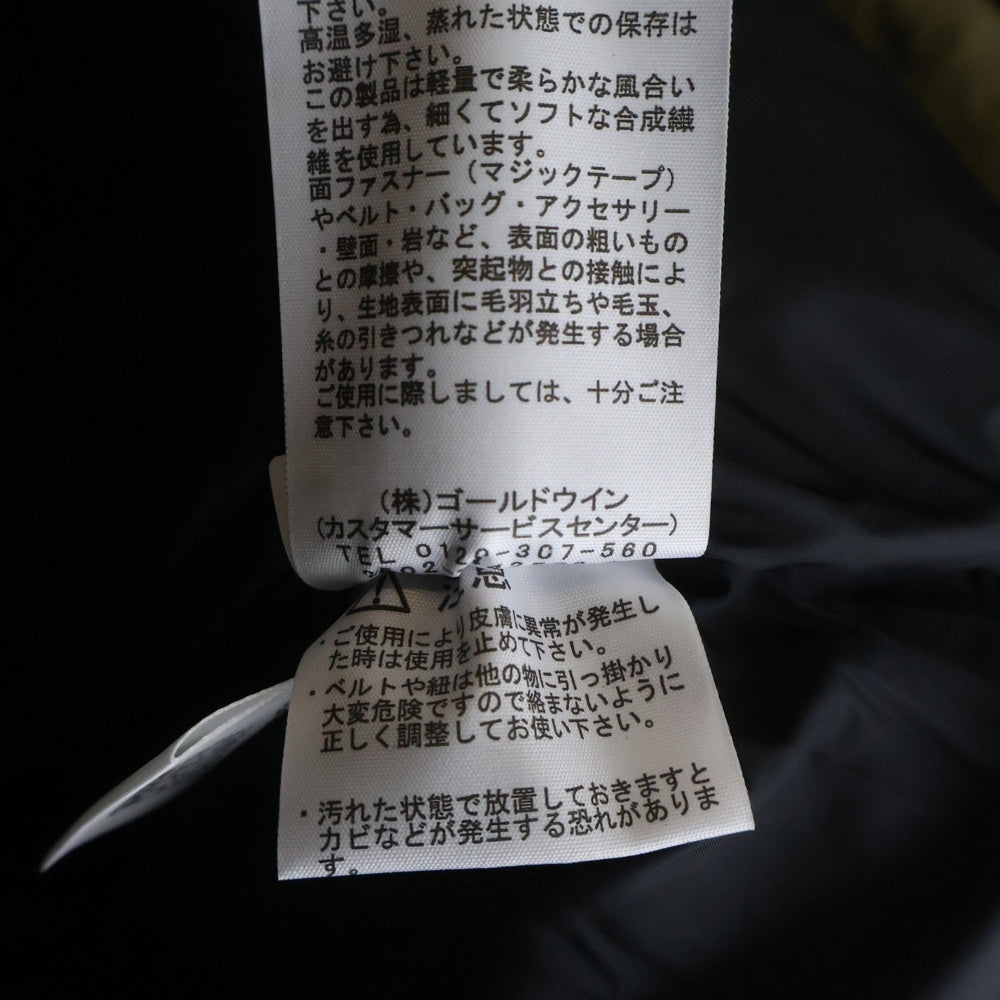 下さい。
高温多湿、蒸れた状態での保存は
お避け下さい。
この製品は軽量で柔らかな風合い
を出す為、細くてソフトな合成繊
維を使用しています。
面ファスナー(マジックテープ)
やベルト・バッグ・アクセサリー
・壁面・岩など、表面の粗いもの
との摩擦や、突起物との接触によ
り、生地表面に毛羽立ちや毛玉、
糸の引きつれなどが発生する場合
があります。
ご使用に際しましては、十分ご注
意下さい。
(株)ゴールドウイン
(カスタマーサービスセンター)
TEL 0120-307-560
注意
・ご使用により皮膚に異常が発生し
た時は使用を止めて下さい。
・ベルトや紐は他の物に引っ掛かり
大変危険ですので絡まないように
正しく調整してお使い下さい。
・汚れた状態で放置しておきますと
カビなどが発生する恐れがありま
す。